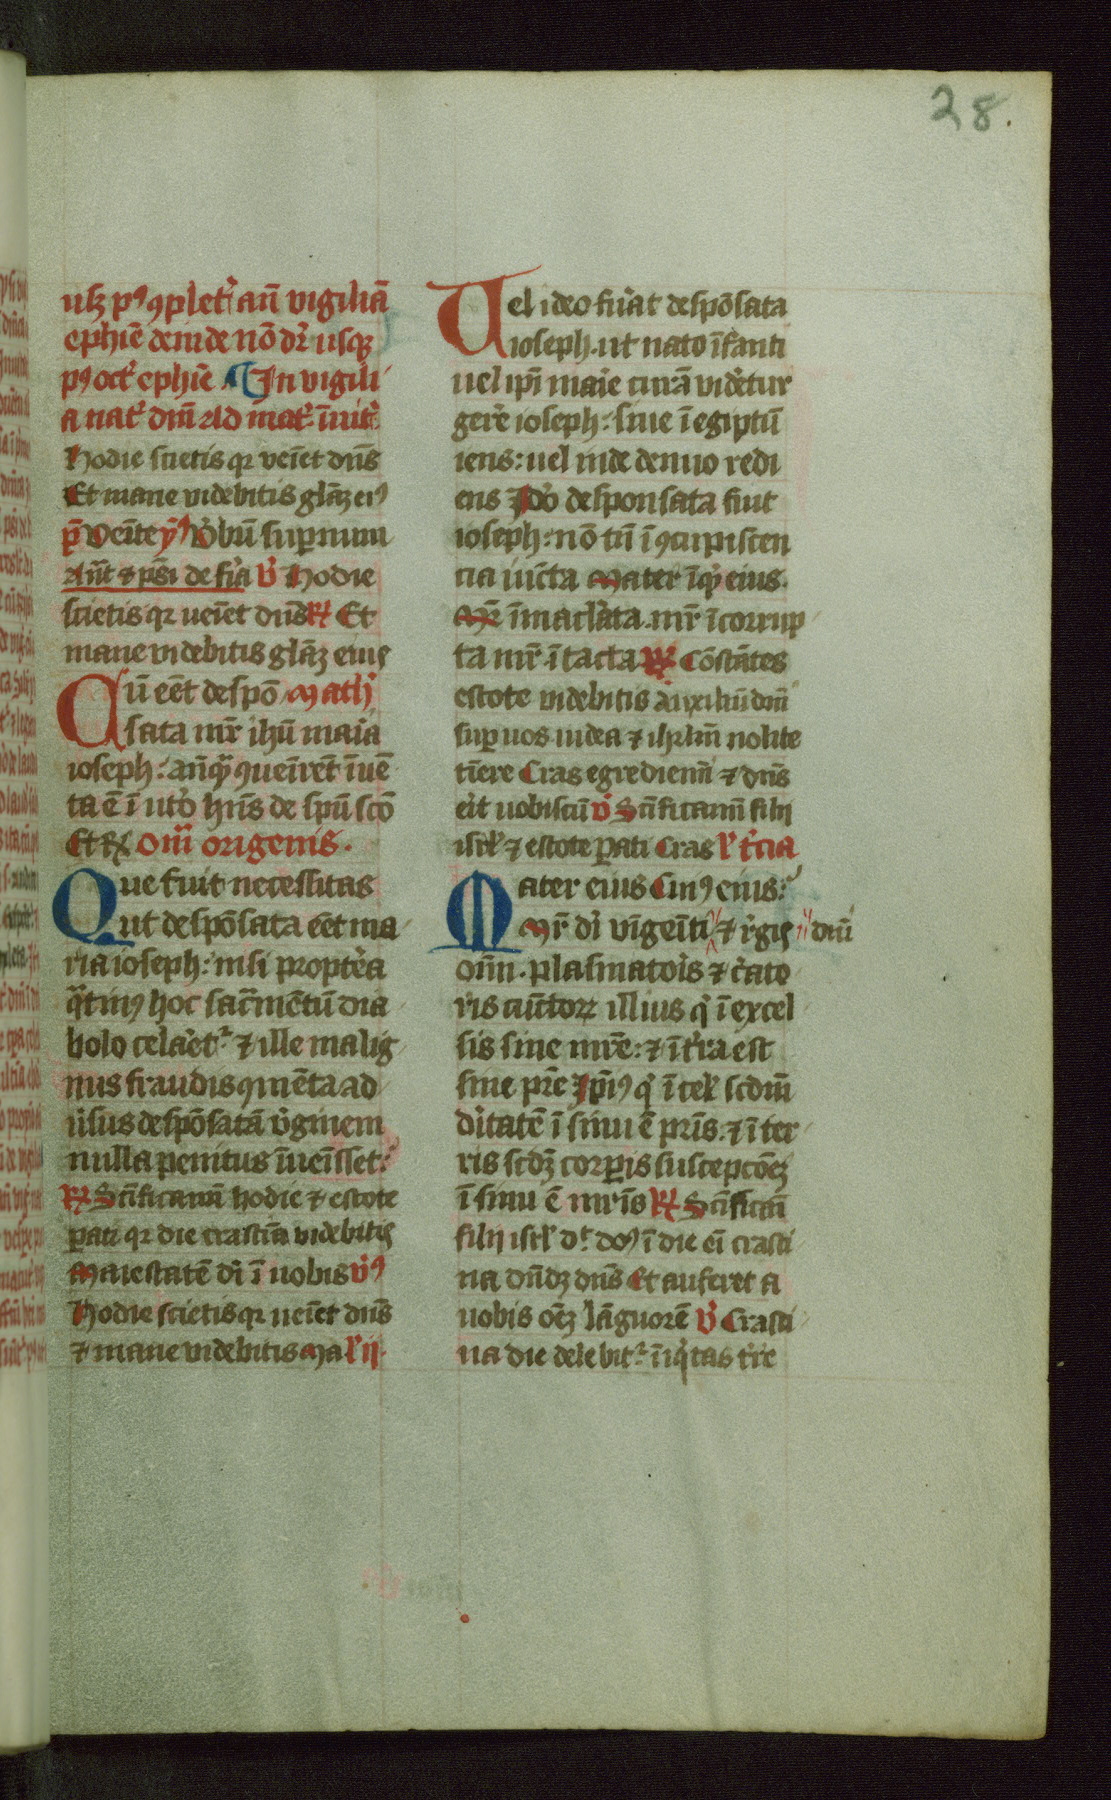 28.
usqꝫ pꝰ ꝯplet᷑ an̄ vigiliā
ephie᷑ deinde nō dr̄ usqꝫ
pꝰ oct᷑ ephie᷑ ¶ In vigili
a nat᷑ dnī Ad mat᷑ īuit᷑
Hodie scietis qꝛ veīet dn̄s
Et mane videbitis glāꝫ eiꝰ
p̄ Veīte yꝰ Vbū supernum
Ant᷑ ⁊ psī de fīa v̓ Hodie
scietis qꝛ ueīet dn̄s ꝶ Et
mane videbitis glāꝫ eius
Cū eēt despō Math᷑
sata mr̄ ihū maīa
ioseph: an̄qꝫ ꝯueīrēt īuē
ta ē ī uto᷑ hn̄s de spū scō
Et ꝶ Omī origenis.
Que fuit necessitas
ut despōsata eēt ma
ria ioseph: nisi propt᷑ea
q̄tinꝰ hoc sac᷑mētū dia
bolo celaret᷑ ⁊ ille malig
nus fraudis ꝯmēta ad
u᷑sus despōsatā v᷑ginem
nulla penitus īueīsset.
ꝶ Scīficamī hodie ⁊ estote
ꝑati qꝛ die crastīa videbitis
Maiestatē dī ī uobis v̓ꝰ
Hodie scietis qꝛ ueīet dn̄s
⁊ mane videbitis Ma l᷑ ij.
Uel ideo fuāt despōsata
ioseph. ut nato īfanti
uel ipī maīe curā videt᷑ur
gere᷑ ioseph: siue ī egiptū
iens: uel inde denuo redi
ens Idō desponsata fuit
ioseph: nō tn̄ ī ꝯcupiscen
cia iūcta Mater īq̓ eius.
Mr̄ īmaclāta. mr̄ īcorrup
ta mr̄ ītacta ꝶ Cōstātes
estote videbitis auxiliū dn̄i
suꝑ uos iudea ⁊ ihrlm̄ nolite
tīere Cras egredienī ⁊ dn̄s
eīt uobiscū v̓ Scīficamī filij
isrl᷑ ⁊ estote ꝑati Cras l᷑ t᷑cia
Mater eius Cuiꝰ eius:
Mr̄ dī vīgeīti ⁊ r᷑gis dm̄
om̄. plasmatoīs ⁊ c᷑ato
ris cūctoꝝ illius q̓ ī excel
sis sine mr̄e: ⁊ ī t᷑ra est
sine pr̄e Ipīꝰ q̓ ī cel᷑ scdm̄
dītatē ī sinu ē pr̄is. ⁊ ī ter
ris scdꝫ corꝑis suscepcōeꝫ
ī sinu ē mr̄is ꝶ Scīficāī
filij isrl᷑ d᷑t dn̄s ī die eī crasti
na dn̄dꝫ dn̄s Et auferet a
uobis oēꝫ lāguorē v̓ Crasti
na die delebit᷑ īiq̓tas t᷑re